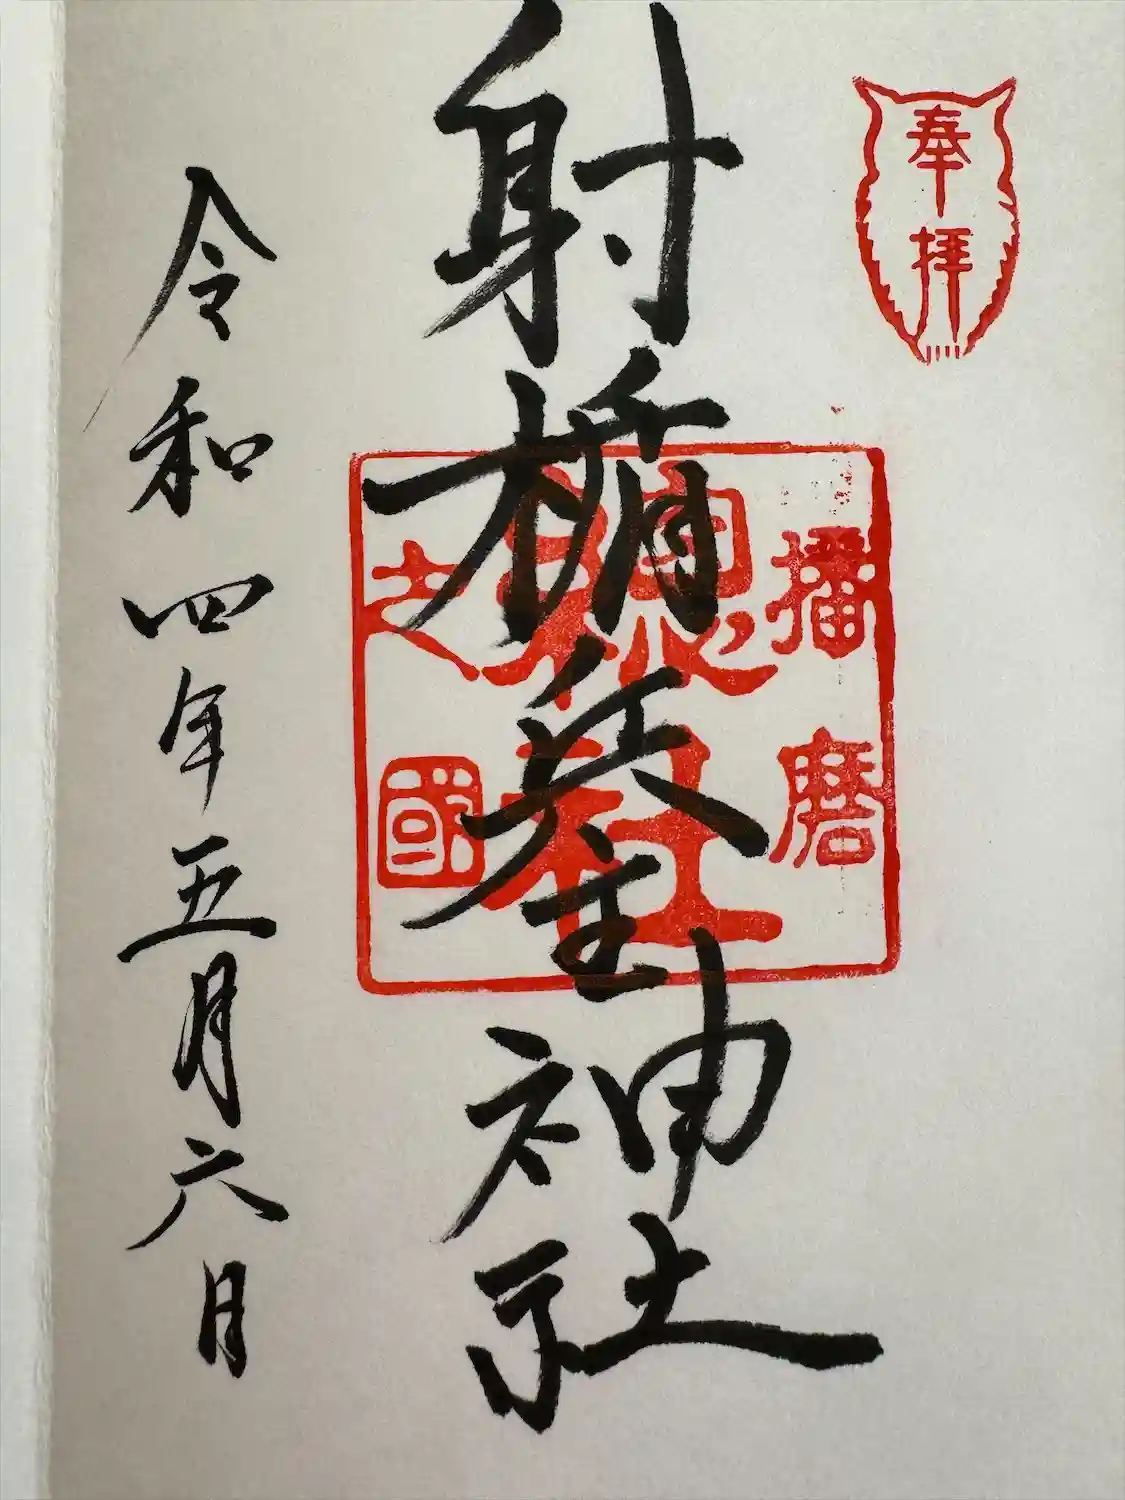 奉拝
射楯兵主神社
播磨
總社
之國
令和四年五月六日